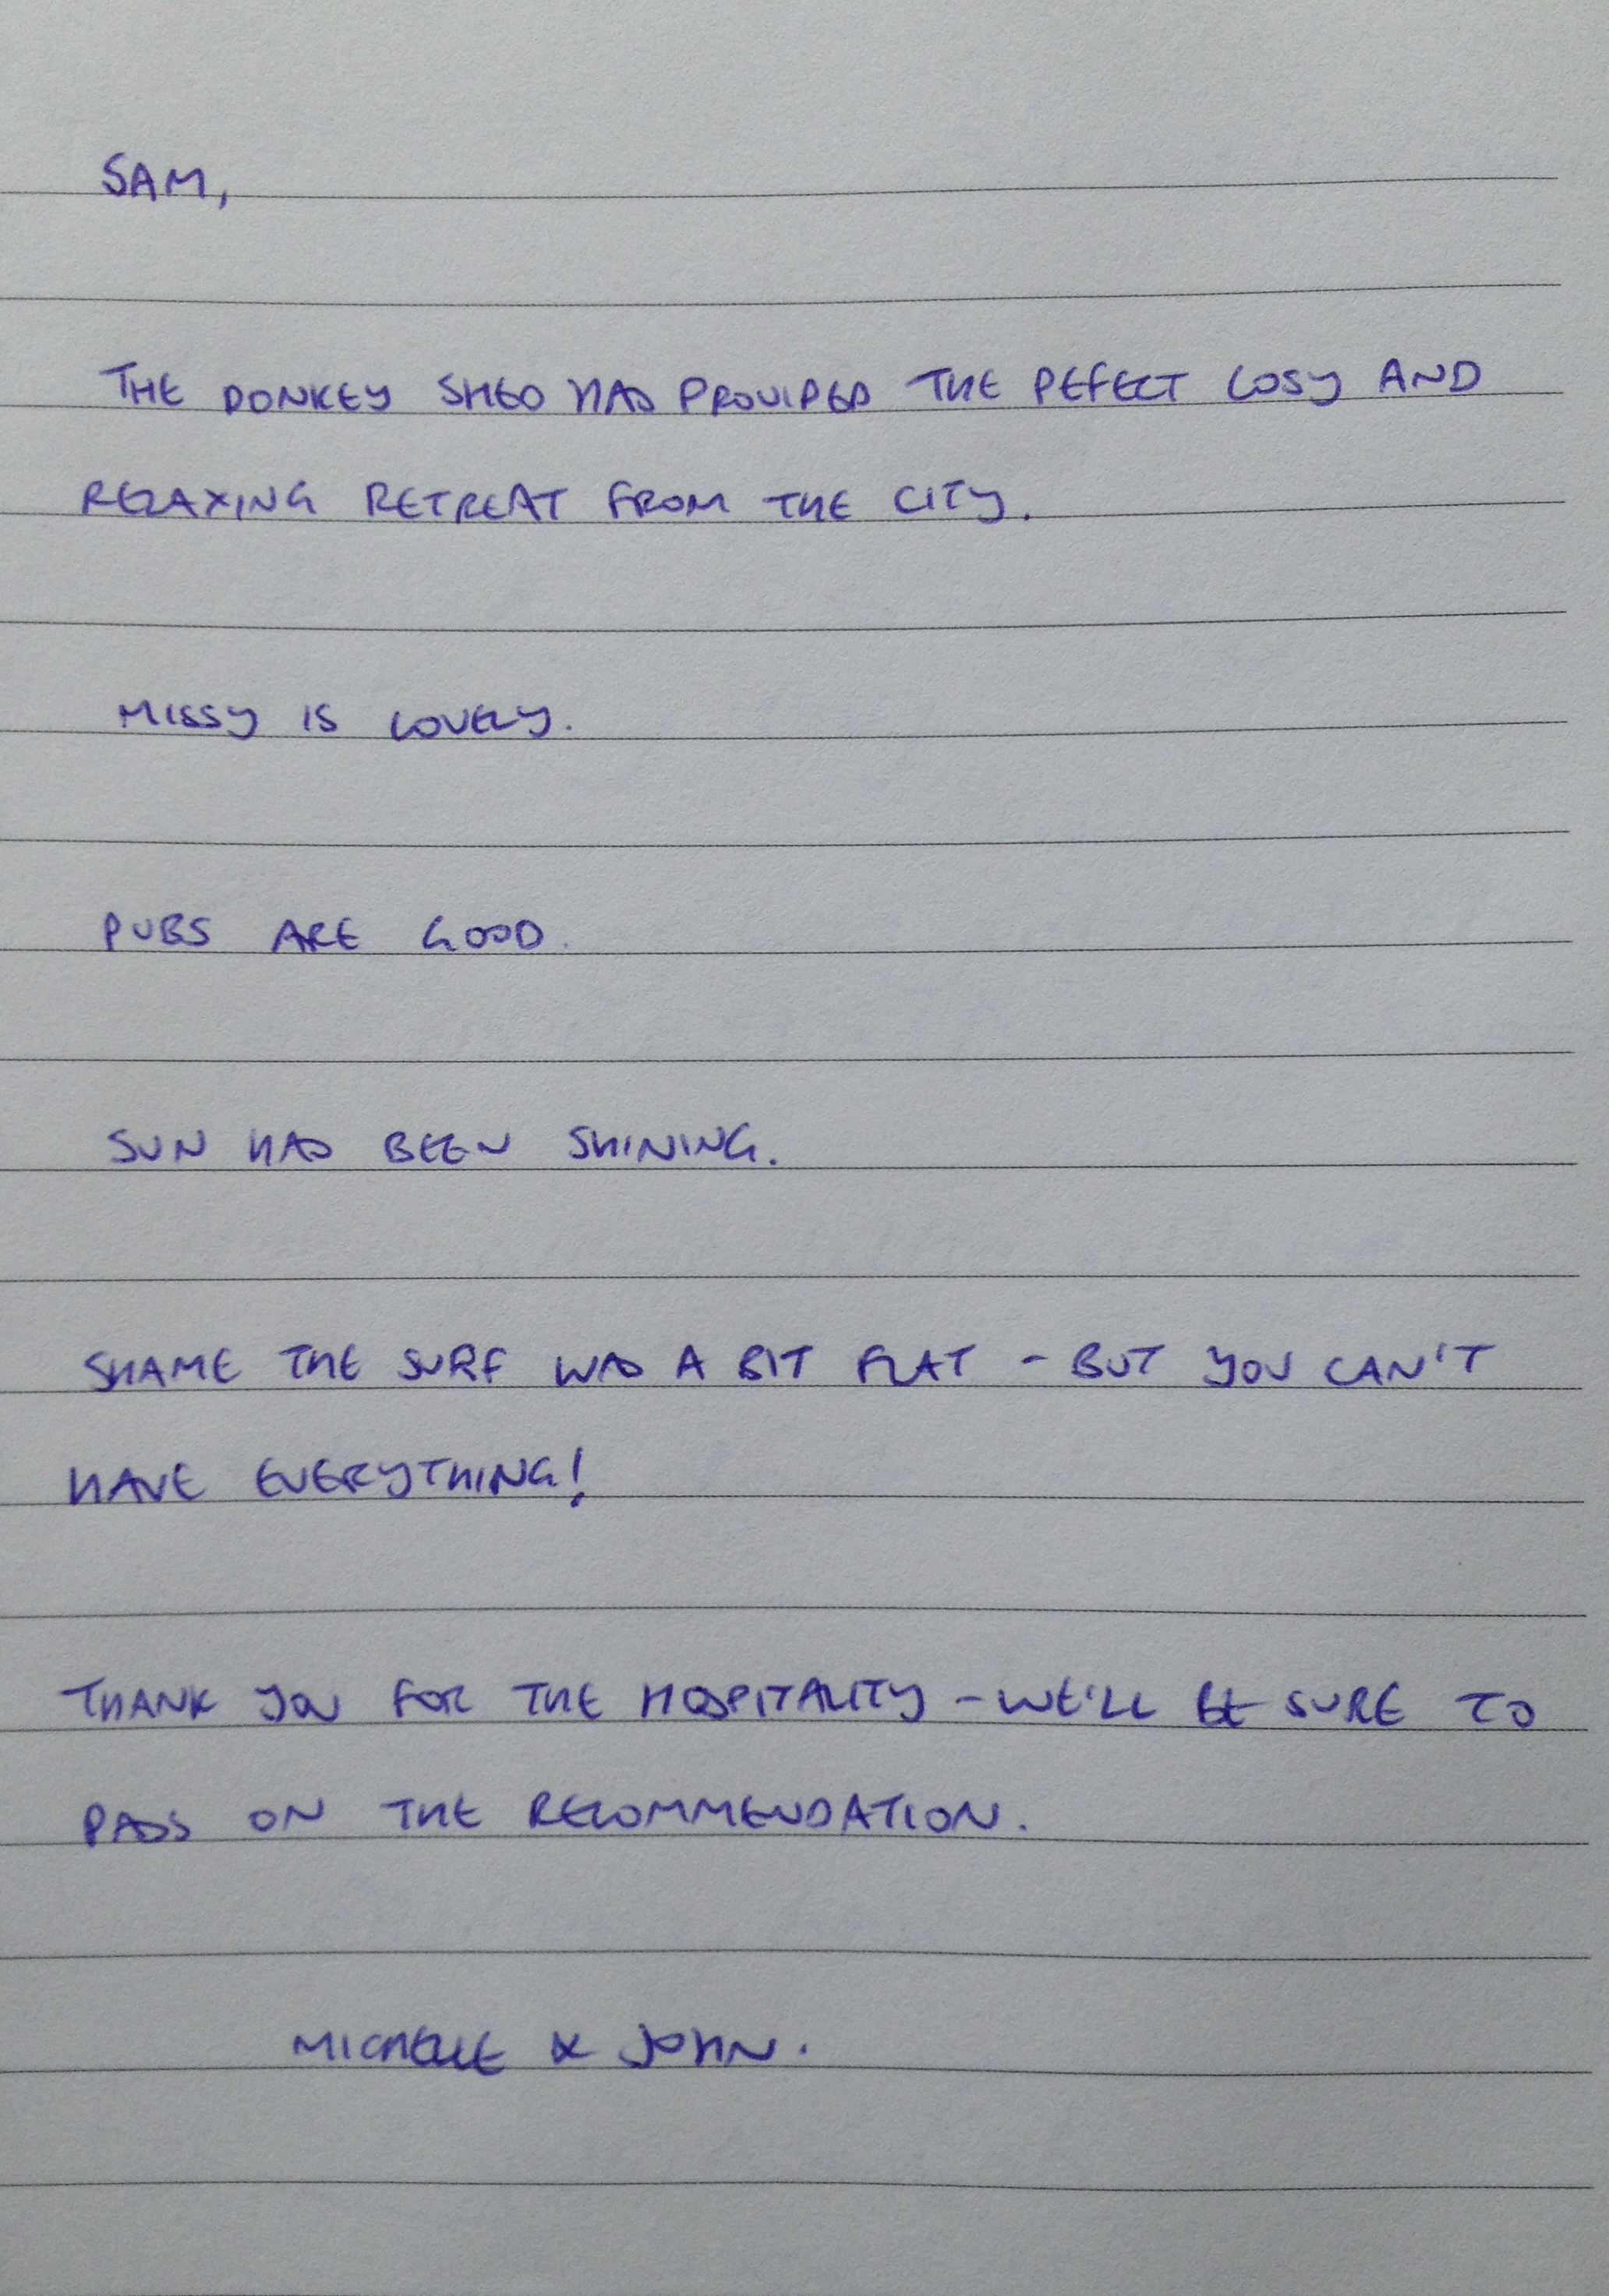 SAM,
THE DONKEY SHED HAS PROVIDED THE PEFECT COSY AND
RELAXING RETREAT FROM THE CITY.
MISSY IS LOVELY.
PUBS ARE GOOD.
SUN HAS BEEN SHINING.
SHAME THE SURF WAS A BIT FLAT - BUT YOU CAN'T
HAVE EVERYTHING!
THANK YOU FOR THE HOSPITALITY - WE'LL BE SURE TO
PASS ON THE RECOMMENDATION.
MICHELLE & JOHN.